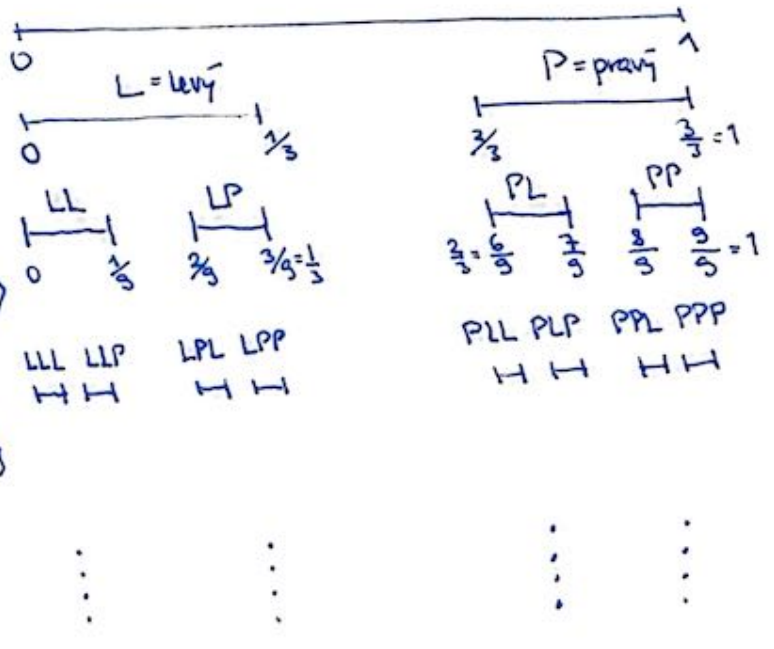 0 1
L = levý P = pravý
0 1/3 2/3 3/3 = 1
LL LP PL PP
0 1/9 2/9 3/9 = 1/3 2/3 = 6/9 7/9 8/9 9/9 = 1
LLL LLP LPL LPP PLL PLP PPL PPP